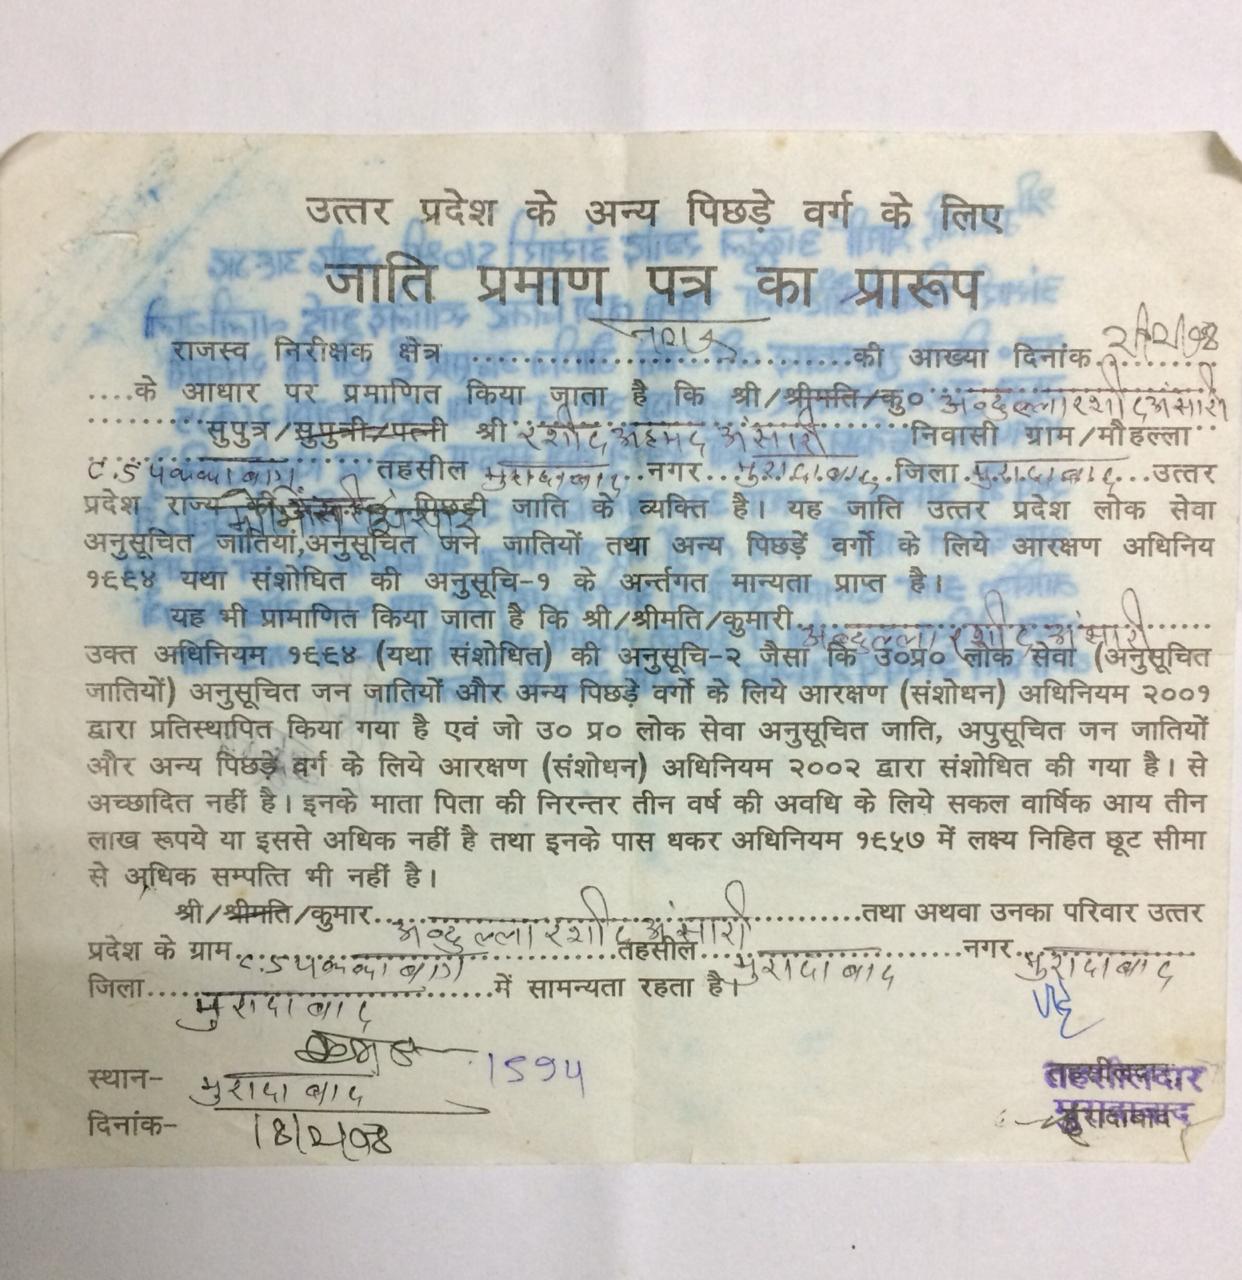 उत्तर प्रदेश के अन्य पिछड़े वर्ग के लिए
जाति प्रमाण पत्र का प्रारूप
राजस्व निरीक्षक क्षेत्र ........................................की आख्या दिनांक
....के आधार पर प्रमाणित किया जाता है कि श्री/श्रीमति/कु० अब्दुल्ला रशीद अंसारी
सुपुत्र/सुपुत्री/पत्नी श्री रशीद अहमद अंसारी निवासी ग्राम/मौहल्ला
पक्का बाग तहसील मुरादाबाद नगर मुरादाबाद जिला मुरादाबाद उत्तर
प्रदेश राज्य की पिछड़ी जाति के व्यक्ति है। यह जाति उत्तर प्रदेश लोक सेवा
अनुसूचित जातियां,अनुसूचित जन जातियों तथा अन्य पिछड़ें वर्गो के लिये आरक्षण अधिनिय
१९९४ यथा संशोधित की अनुसूचि-१ के अर्न्तगत मान्यता प्राप्त है।
यह भी प्रामाणित किया जाता है कि श्री/श्रीमति/कुमारी अब्दुल्ला रशीद अंसारी
उक्त अधिनियम १९९४ (यथा संशोधित) की अनुसूचि-२ जैसा कि उ०प्र० लोक सेवा (अनुसूचित
जातियों) अनुसूचित जन जातियों और अन्य पिछड़े वर्गो के लिये आरक्षण (संशोधन) अधिनियम २००१
द्वारा प्रतिस्थापित किया गया है एवं जो उ० प्र० लोक सेवा अनुसूचित जाति, अपुसूचित जन जातियों
और अन्य पिछड़ें वर्ग के लिये आरक्षण (संशोधन) अधिनियम २००२ द्वारा संशोधित की गया है। से
अच्छादित नहीं है। इनके माता पिता की निरन्तर तीन वर्ष की अवधि के लिये सकल वार्षिक आय तीन
लाख रूपये या इससे अधिक नहीं है तथा इनके पास धकर अधिनियम १९५७ में लक्ष्य निहित छूट सीमा
से अधिक सम्पत्ति भी नहीं है।
श्री/श्रीमति/कुमार अब्दुल्ला रशीद अंसारी तथा अथवा उनका परिवार उत्तर
प्रदेश के ग्राम पक्का बाग तहसील मुरादाबाद नगर मुरादाबाद
जिला मुरादाबाद में सामन्यता रहता है।
1594
स्थान- मुरादाबाद
तहसीलदार
दिनांक- 18/2/08
मुरादाबाद